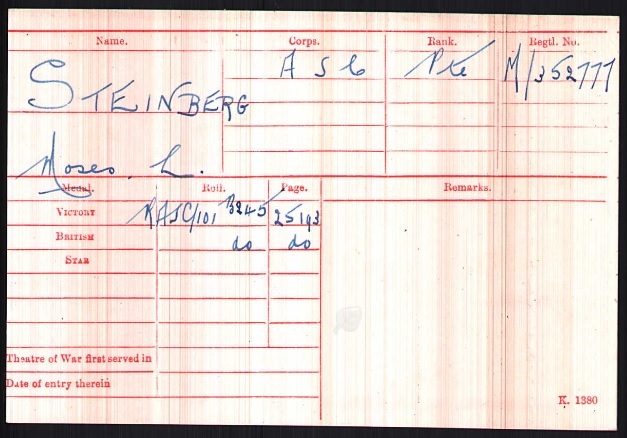 Name. Corps. Rank. Regtl. No.
STEINBERG A S C Pte M/352777
Moses. L.
Medal. Roll. Page. Remarks.
VICTORY RASC/101 B245 25193
BRITISH do do
STAR
Theatre of War first served in
Date of entry therein
K. 1380